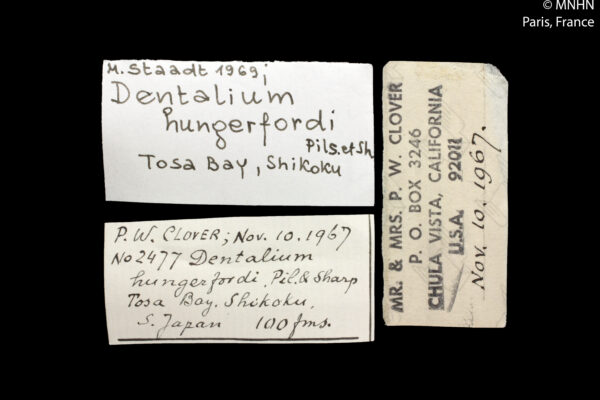 © MNHN
Paris, France
M. Staadt 1969;
Dentalium
hungerfordi
Pils. et Sh
Tosa Bay, Shikoku
P. W. CLOVER; Nov. 10. 1967
No 2477 Dentalium
hungerfordi, Pil. & Sharp
Tosa Bay. Shikoku.
S. Japan 100 fms.
MR. & MRS. P. W. CLOVER
P. O. BOX 3246
CHULA VISTA, CALIFORNIA
U.S.A. 92011
Nov. 10. 1967.